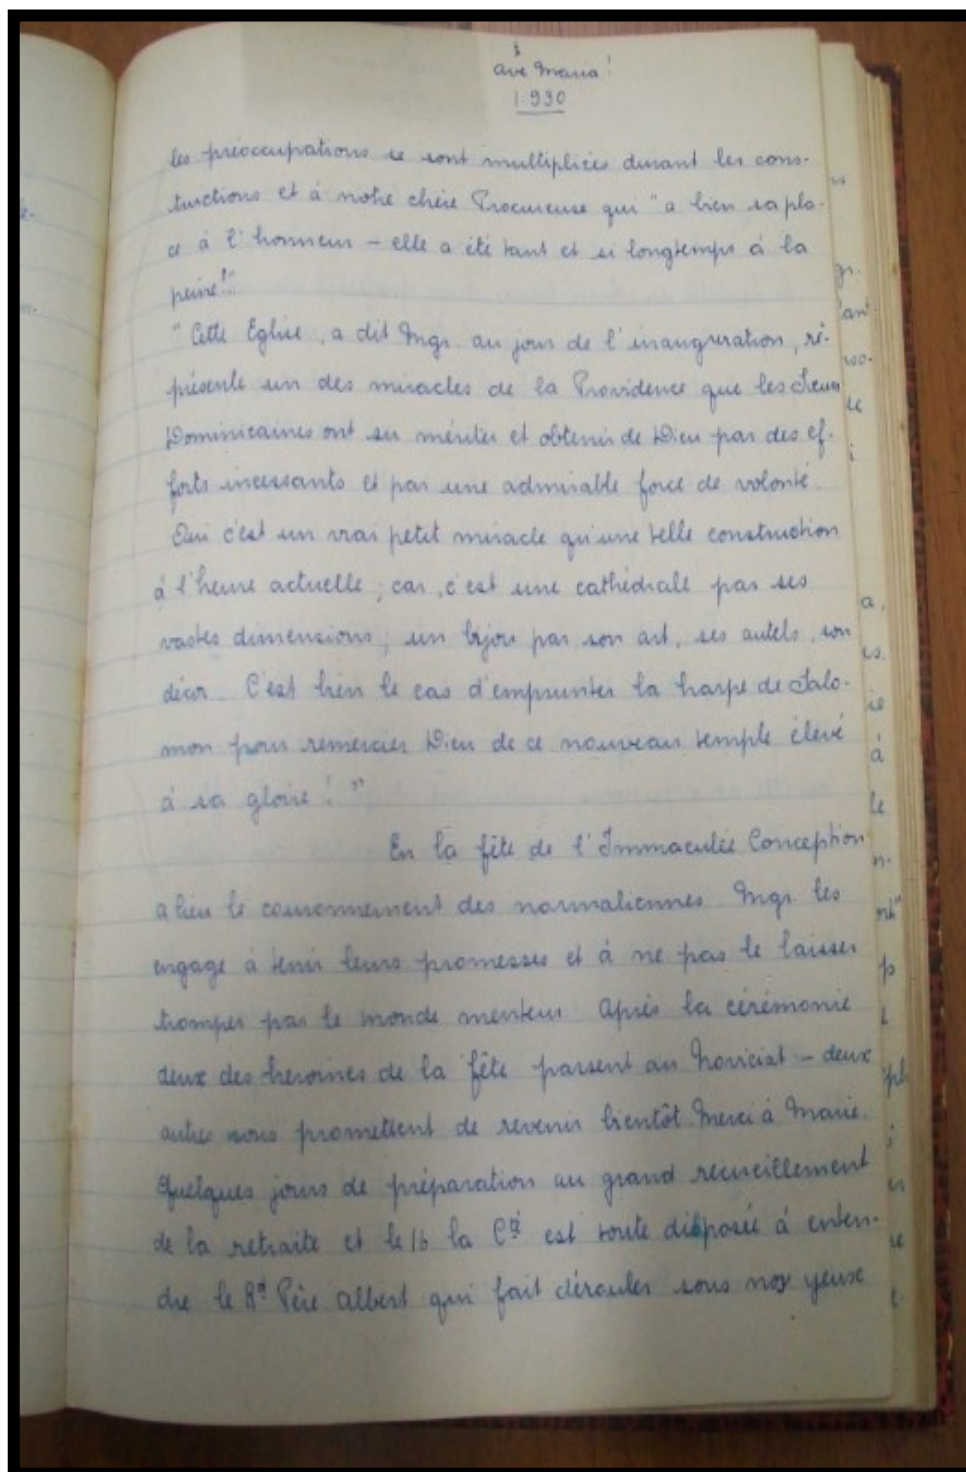 Ave Maria!
1930
les préoccupations se sont multipliées durant les cons-
tructions et à notre chère Procureuse qui "a bien sa pla-
ce à l'honneur – elle a été tant et si longtemps à la
peine!"
"Cette Eglise, a dit Mgr. au jour de l'inauguration, ré-
présente un des miracles de la Providence que les Sœurs
Dominicaines ont su mériter et obtenir de Dieu par des ef-
forts incessants et par une admirable force de volonté.
Oui c'est un vrai petit miracle qu'une telle construction
à l'heure actuelle; car, c'est une cathédrale par ses
vastes dimensions; un bijou par son art, ses autels, son
décor. C'est bien le cas d'emprunter la harpe de Salo-
mon pour remercier Dieu de ce nouveau temple élevé
à sa gloire!"
En la fête de l'Immaculée Conception
a lieu le couronnement des normaliennes Mgr. les
engage à tenir leurs promesses et à ne pas se laisser
tromper par le monde menteur. Après la cérémonie
deux des héroïnes de la fête passent au Noviciat – deux
autres nous promettent de revenir bientôt. Merci à Marie.
Quelques jours de préparation au grand recueillement
de la retraite et le 16 la Cté est toute disposée à enten-
dre le Rd Père Albert qui fait dérouler sous nos yeux